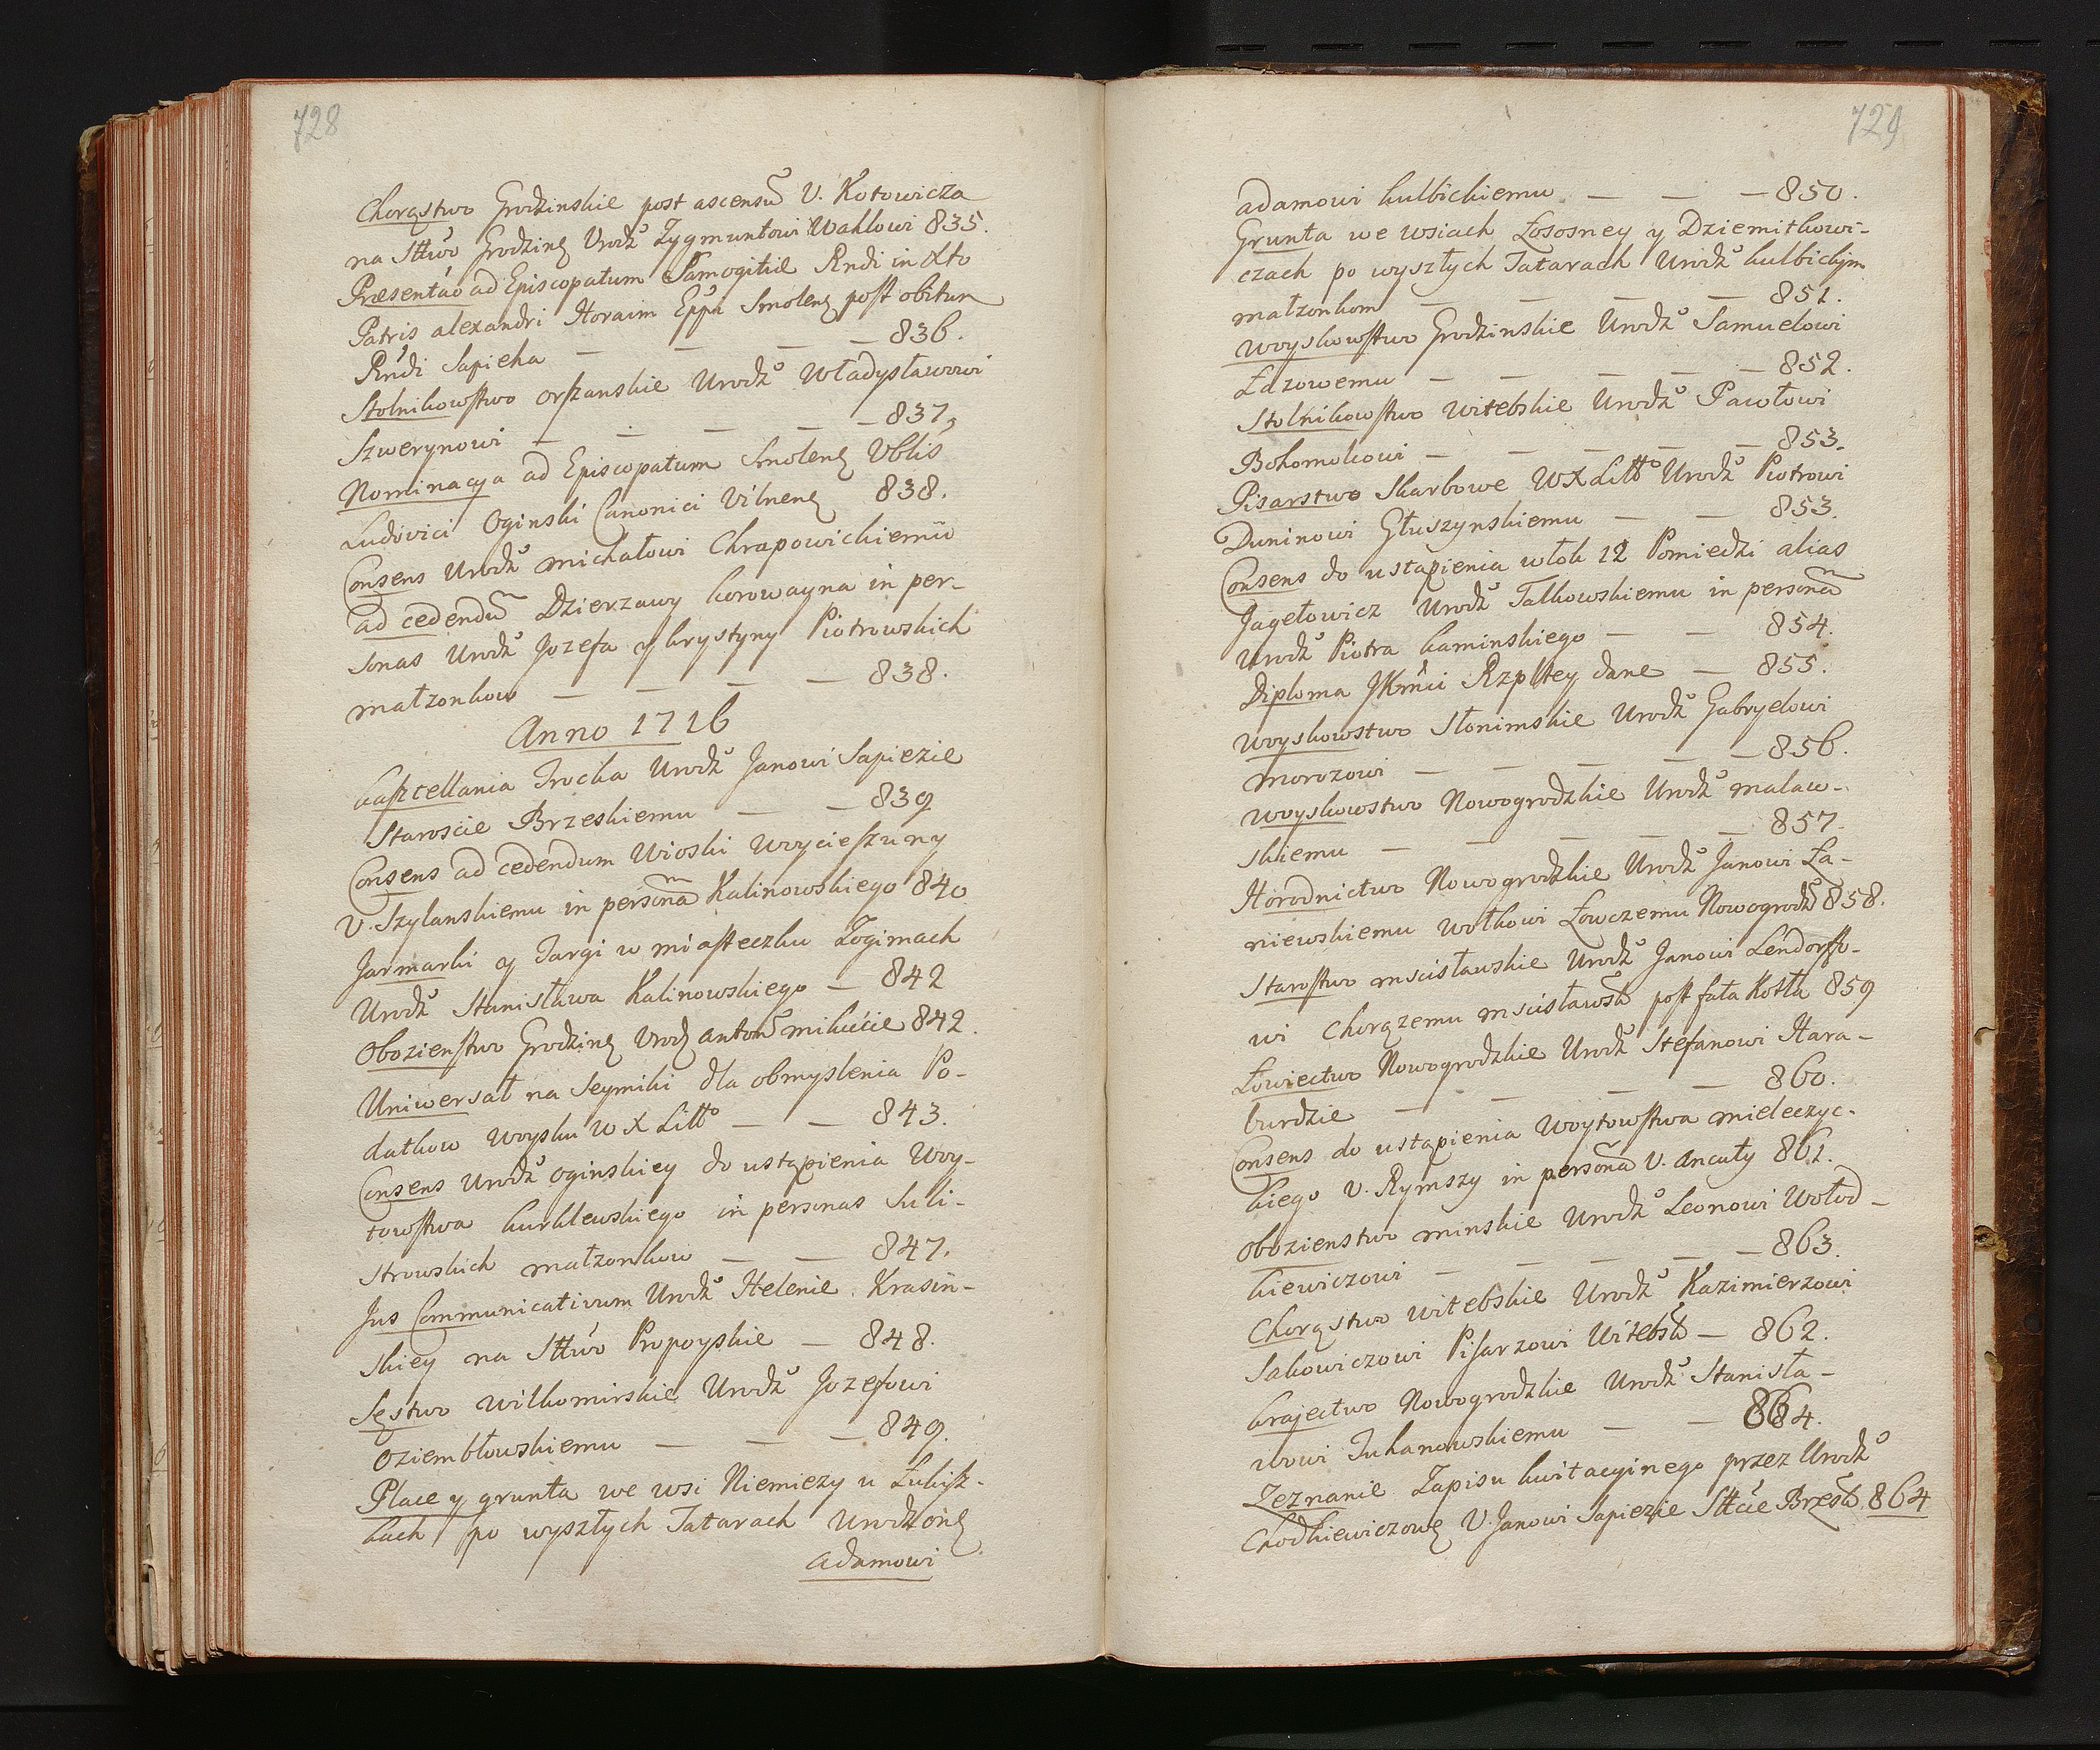 728
Chorąstwo Grodzinskie post ascensũ V. Kotowicza
na Sttwo Grodzinẽ Urodz̃ Zygmuntowi Wahlowi 835.
Præsentão ad Episcopatum Samogitiæ Rndi in Xto
Patris alexandri Horaim Eppi Smolenẽ post obitum
Rndi Sapieha — — — — 836.
Stolnikowstwo orszanskie Urodz̃ Władysławowi
Szwerynowi — — — — — 837,
Nominacya ad Episcopatum Smolenẽ Vblis
Ludovici Oginski Canonici Vilnenẽ 838.
Consens Urodz̃ michałowi Chrapowickiemu
ad cedendũ Dzierzawy korowayna in per-
sonas Urodz̃ Jozefa y krystyny Piotrowskich
małzonkow — — — — 838.
Anno 1716
kasztellania Trocka Urodz̃ Janowi Sapiezie
Staroscie Brzeskiemu — — 839
Consens ad cedendum Wioski Woycieszuny
V. Szylanskiemu in personã Kalinowskiego 840
Jarmarki y Targi w miasteczku Zogimach
Urodz̃ Stanisława Kalinowskiego — 842
Obozienstwo Grodzinẽ Urodz̃ Anton̄ mikucie 842.
Uniwersał na Seymiki dla obmyslenia Po-
datkow woysku W X Litto — — 843.
Consens Urodz̃ Oginskiey do ustąpienia Woy-
towstwa kurklewskiego in personas Suli-
strowskich małzonkow — — 847.
Jus Communicativum Urodz̃ Helenie Krasin-
skiey na Sttwo Propoyskie — 848.
Sęstwo wiłkomirskie Urodz̃ Jozefowi
Oziembłowskiemu — — — 849.
Place y grunta we wsi Niemiezy u Łukisz-
kach po wyszłych Tatarach Urodzonẽ
Adamowi
729
adamowi kulbickiemu — — — 850.
Grunta we wsiach Łososney y Dziemitkowi-
czach po wyszłych Tatarach Urodz̃ kulbickim
małzonkom — — — — 851.
Woyskowstwo Grodzinskie Urodz̃ Samuelowi
Łazowemu — — — — — 852.
Stolnikowstwo Witebskie Urodz̃ Pawłowi
Bohomolcowi — — — — — 853.
Pisarstwo Skarbowe W X Litto Urodz̃ Piotrowi
Duninowi Głuszynskiemu — — 853.
Consens do ustąpienia włok 12 Pomiedzi alias
Jagełowicz Urodz̃ Talkowskiemu in personã
Urodz̃ Piotra kaminskiego — — 854.
Diploma JKmci Rzpltey dane — 855.
Woyskowstwo Słonimskie Urodz̃ Gabryelowi
morozowi — — — — — 856.
Woyskowstwo Nowogrodzkie Urodz̃ malaw-
skiemu — — — — — 857.
Horodnictwo Nowogrodzkie Urodz̃ Janowi Ła-
niewskiemu wołkowi Łowczemu Nowogrodz̃ 858.
Starostwo mscisławskie Urodz̃ Janowi Lendorffo-
wi Chorązemu mscisławsk̃ post fata Kotła 859
Łowiectwo Nowogrodzkie Urodz̃ Stefanowi Hara-
burdzie — — — — 860.
Consens do ustąpienia Woytowstwa mieleczyc-
kiego V. Rymszy in personã V. Ancuty 861.
Obozienstwo minskie Urodz̃ Leonowi Wołod-
kiewiczowi — — — — 863.
Chorąstwo witebskie Urodz̃ Kazimierzowi
Sakowiczowi Pisarzowi Witebsk̃ — 862.
krajectwo Nowogrodzkie Urodz̃ Stanisła-
wowi Tuhanowskiemu — — 864.
Zeznanie Zapisu kwitacyinego przez Urodz̃
Chodkiewiczowẽ V. Janowi Sapiezie Sttcie Brzesk̃ 864